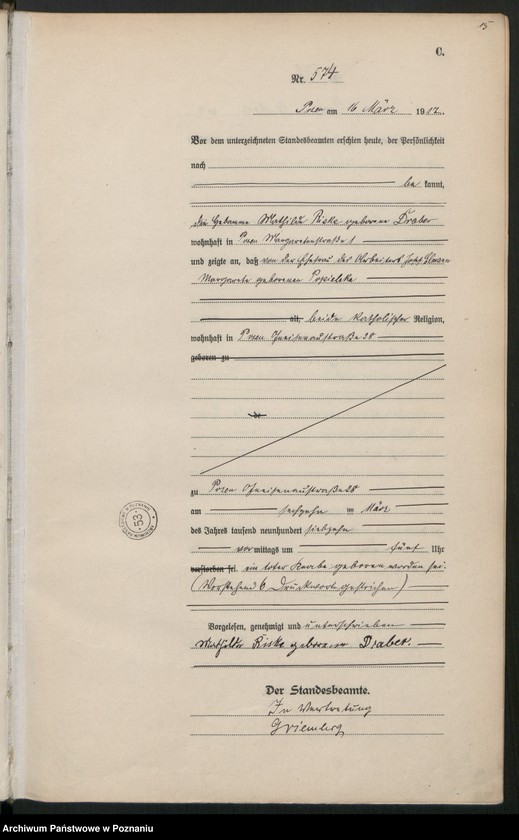 15
C.
Nr. 574
Posen am 16 März 1917.
Vor dem unterzeichneten Standesbeamten erschien heute, der Persönlichkeit
nach
be kannt,
die Hebamme Mathilde Riske geborene Draber
wohnhaft in Posen Margaretenstraße 1
und zeigte an, daß von der Ehefrau des Arbeiters Josef
Margarete geborenen
alt, beide katholischer Religion,
wohnhaft in Posen Gneisenaustraße 28
geboren zu
zu Posen Gneisenaustraße 28
am sechzehn im März
des Jahres tausend neunhundert siebzehn
vor mittags um fünf Uhr
verstorben sei. ein toter Knabe geboren worden sei.
(Vorstehend 6 Druckworte gestrichen)
Vorgelesen, genehmigt und unterschrieben
Mathilde Riske geborene Draber.
Der Standesbeamte.
In Vertretung
53
Archiwum Państwowe w Poznaniu